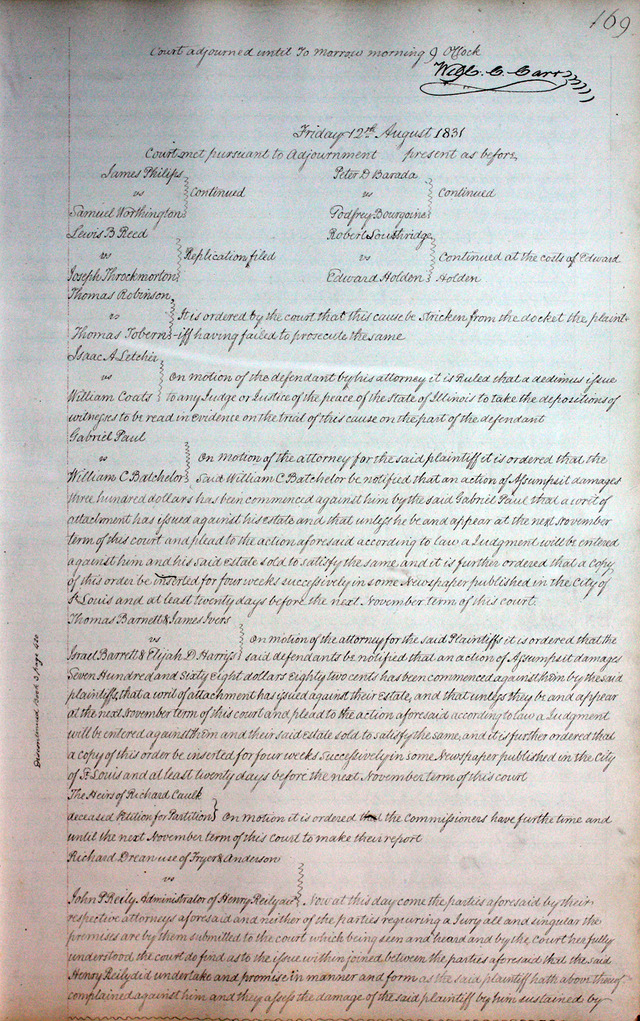 169
Court adjourned until To Morrow morning 9 Oclock
Will. C. Carr
Friday 12th August 1831
Court met pursuant to Adjournment present as before,
James Philips
vs Continued
Samuel Worthington
Peter D Barada
vs Continued
Godfrey Bourgoine
Lewis B Reed
vs Replication filed
Joseph Throckmorton
Robert Southridge
vs Continued at the costs of Edward
Edward Holden Holden
Thomas Robinson
vs It is ordered by the court that this cause be stricken from the docket the plaint-
Thomas Tobern iff having failed to prosecute the same
Isaac A Letcher
vs On motion of the defendant by his attorney it is Ruled that a dedimus issue
William Coats to any Judge or Justice of the peace of the State of Illinois to take the depositions of
witnesses to be read in evidence on the trial of this cause on the part of the defendant
Gabriel Paul
vs On motion of the attorney for the said plaintiff it is ordered that the
William C Batchelor said William C Batchelor be notified that an action of Assumpsit damages
three hundred dollars has been commenced against him by the said Gabriel Paul that a writ of
attachment has issued against his estate and that unless he be and appear at the next November
term of this court and plead to the action aforesaid according to law a Judgment will be entered
against him and his said estate sold to satisfy the same and it is further ordered that a copy
of this order be inserted for four weeks successively in some Newspaper published in the City of
St Louis and at least twenty days before the next November term of this court.
Thomas Barnett & James Ivers
vs On motion of the attorney for the said Plaintiffs it is ordered that the
Israel Barrett & Elijah D Harriss said defendants be notified that an action of Assumpsit damages
Seven Hundred and Sixty Eight dollars Eighty two cents has been commenced against them by the said
plaintiffs, that a writ of attachment has issued against their Estate, and that unless they be and appear
at the next November term of this court and plead to the action aforesaid according to law a Judgment
will be entered against them and their said estate sold to satisfy the same, and it is further ordered that
a copy of this order be inserted for four weeks successively in some Newspaper published in the City
of St Louis and at least twenty days before the next November term of this court
Discontinued Book page
The Heirs of Richard Caulk
deceased Petition for Partition On motion it is ordered that the Commissioners have furthe time and
until the next November term of this Court to make their report
Richard Drean use of Fryer & Anderson
vs
John P Reily Administrator of Henry Reily Now at this day come the parties aforesaid by their
respective attorneys aforesaid and neither of the parties requiring a Jury all and singular the
premises are by them submitted to the court which being seen and heard and by the Court her fully
understood the court do find as to the issue within joined between the parties aforesaid that the said
Henry Reily did undertake and promise in manner and form as the said plaintiff hath above thereof
complained against him and they assess the damage of the said plaintiff by him sustained by